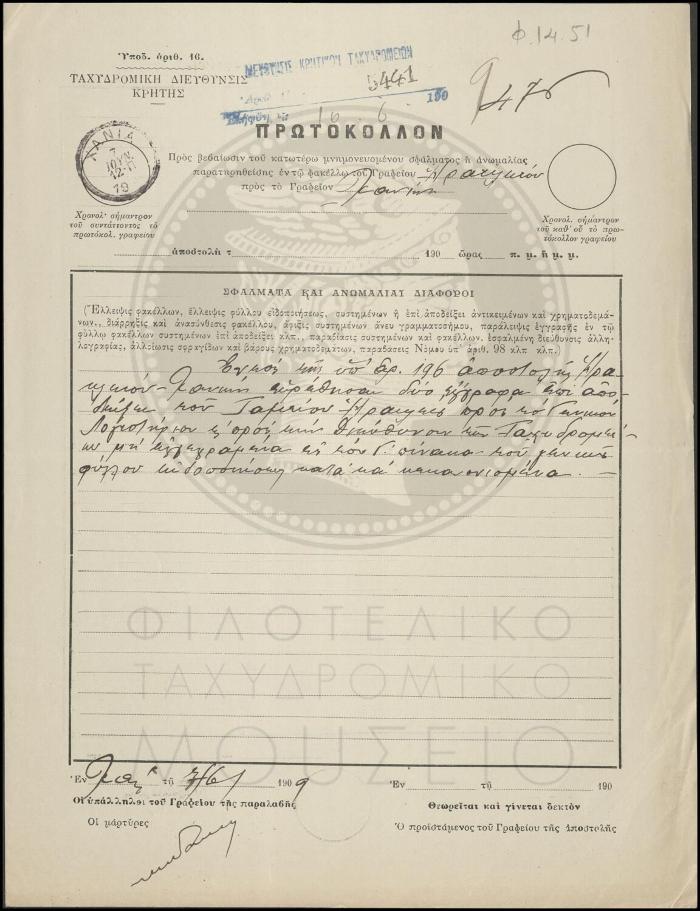 Φ.14.51
Ὑποδ. ἀριθ. 16.
ΤΑΧΥΔΡΟΜΙΚΗ ΔΙΕΥΘΥΝΣΙΣ
ΚΡΗΤΗΣ
ΔΙΕΥΘΥΝΣΙΣ ΚΡΗΤΙΚΩΝ ΤΑΧΥΔΡΟΜΕΙΩΝ
5441
16 6 190
476
ΠΡΩΤΟΚΟΛΛΟΝ
ΧΑΝΙΑ
7
ΙΟΥΝ.
12-Π
Πρὸς βεβαίωσιν τοῦ κατωτέρω μνημονευομένου σφάλματος ἢ ἀνωμαλίας
παρατηρηθείσης ἐν τῷ φακέλλῳ τοῦ Γραφείου Ἡρακλείου
πρὸς τὸ Γραφεῖον Χανίων
Χρονολ· σήμαντρον
τοῦ συντάττοντος τὸ
πρωτόκολ. γραφείου
Χρονολ. σήμαντρον
τοῦ καθ' οὗ τὸ πρω-
τόκολλον γραφείου
ἀποστολὴ τ 190 ὥρας π. μ. ἢ μ. μ.
ΣΦΑΛΜΑΤΑ ΚΑΙ ΑΝΩΜΑΛΙΑΙ ΔΙΑΦΟΡΟΙ
(Ἔλλειψις φακέλλων, ἔλλειψις φύλλου εἰδοποιήσεως, συστημένων ἢ ἐπὶ ἀποδείξει ἀντικειμένων καὶ χρηματοδεμά-
νων, διάρρηξις καὶ ἀνασύνθεσις φακέλλου, ἄφιξις συστημένων ἄνευ γραμματοσήμου, παράλειψις ἐγγραφῆς ἐν τῷ
φύλλῳ φακέλλων συστημένων ἐπὶ ἀποδείξει κλπ., παραβίασις συστημένων καὶ φακέλλου, ἐσφαλμένη διεύθυνσις ἀλλη-
λογραφίας, ἀλλοίωσις σφραγίδων καὶ βάρους χρηματοδεμάτων, παραβάσεις Νόμου ὑπ' ἀριθ. 98 κλπ κλπ.)
Ἐντὸς τῆς ὑπ' ἀρ. 196 ἀποστολῆς Ἡρα-
κλείου-Χανίων εὑρέθησαν δύο ἔγγραφα ἐπὶ ἀπο-
δείξει τοῦ Ταμείου Ἡρακλείου πρὸς τὸ Γενικὸν
Λογιστήριον πρὸς τὴν Διεύθυνσιν τῶν Ταχυδρομεί-
ων μὴ ἐγγεγραμμένα εἰς τὸν Γ. πίνακα τοῦ γενικοῦ
φύλλου εἰδοποιήσεως κατὰ τὰ κεκανονισμένα. —
ΦΙΛΟΤΕΛΙΚΟ
ΤΑΧΥΔΡΟΜΙΚΟ
ΜΟΥΣΕΙΟ
Ἐν τῇ 7/6/ 1909
Ἐν τῇ 190
Οἱ ὑπάλληλοι τοῦ Γραφείου τῆς παραλαβῆς
Θεωρεῖται καὶ γίνεται δεκτὸν
Οἱ μάρτυρες
Ὁ προϊστάμενος τοῦ Γραφείου τῆς ἀποστολῆς